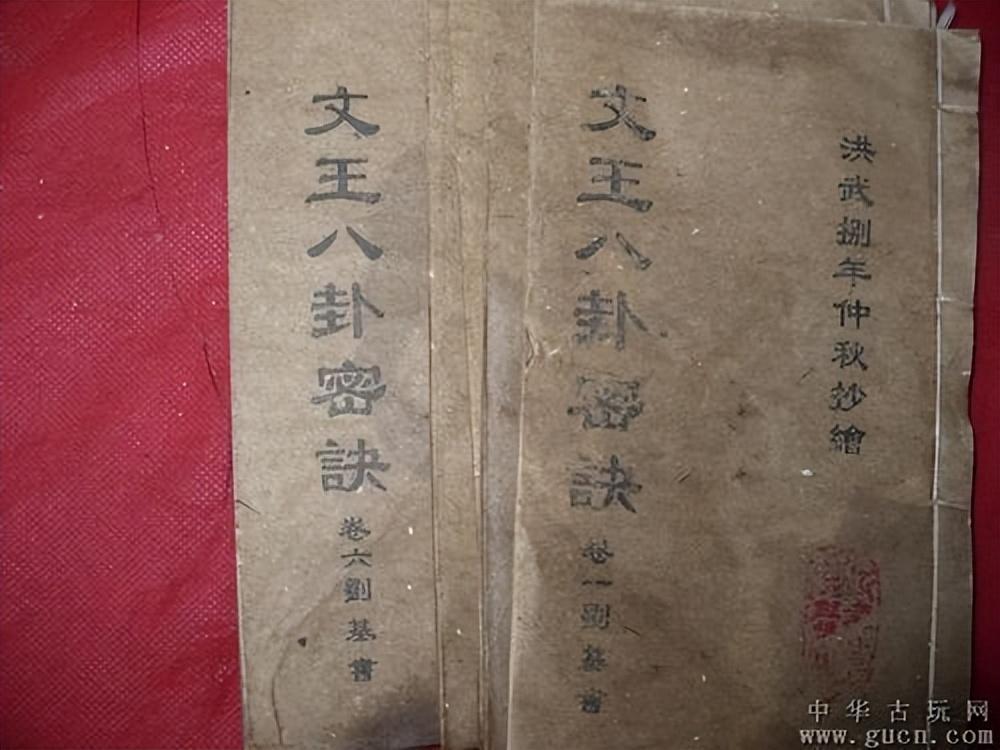 洪武捌年仲秋抄繪
文王八卦密訣
卷一劉基書
文王八卦密訣
卷六劉基書
中华古玩网
www.gucn.com